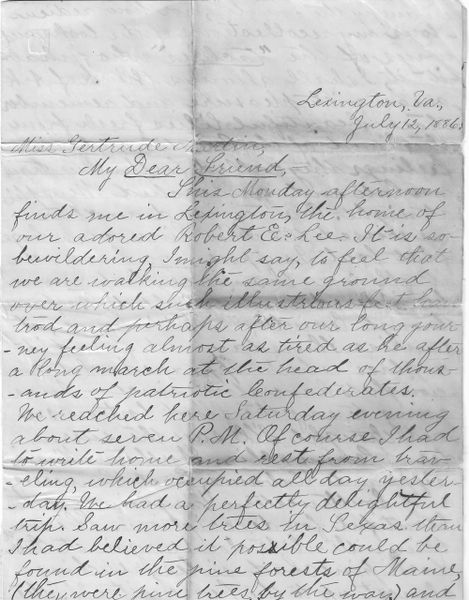 Lexington, Va.,
July 12, 1886.
Miss Gertrude Martin,
My Dear Friend,
This Monday afternoon
finds me in Lexington, the home of
our adored Robert E. Lee. It is so
bewildering, I might say, to feel that
we are walking the same ground
over which such illustrious feet have
trod and perhaps after our long jour-
-ney feeling almost as tired as he after
a long march at the head of thous-
-ands of patriotic Confederates.
We reached here Saturday evening
about seven P.M. Of course I had
to write home and rest from trav-
-eling, which occupied all day yester-
-day. We had a perfectly delightful
trip. Saw more trees in Texas than
I had believed it possible could be
found in the pine forests of Maine,
(they were pine trees, by the way) and